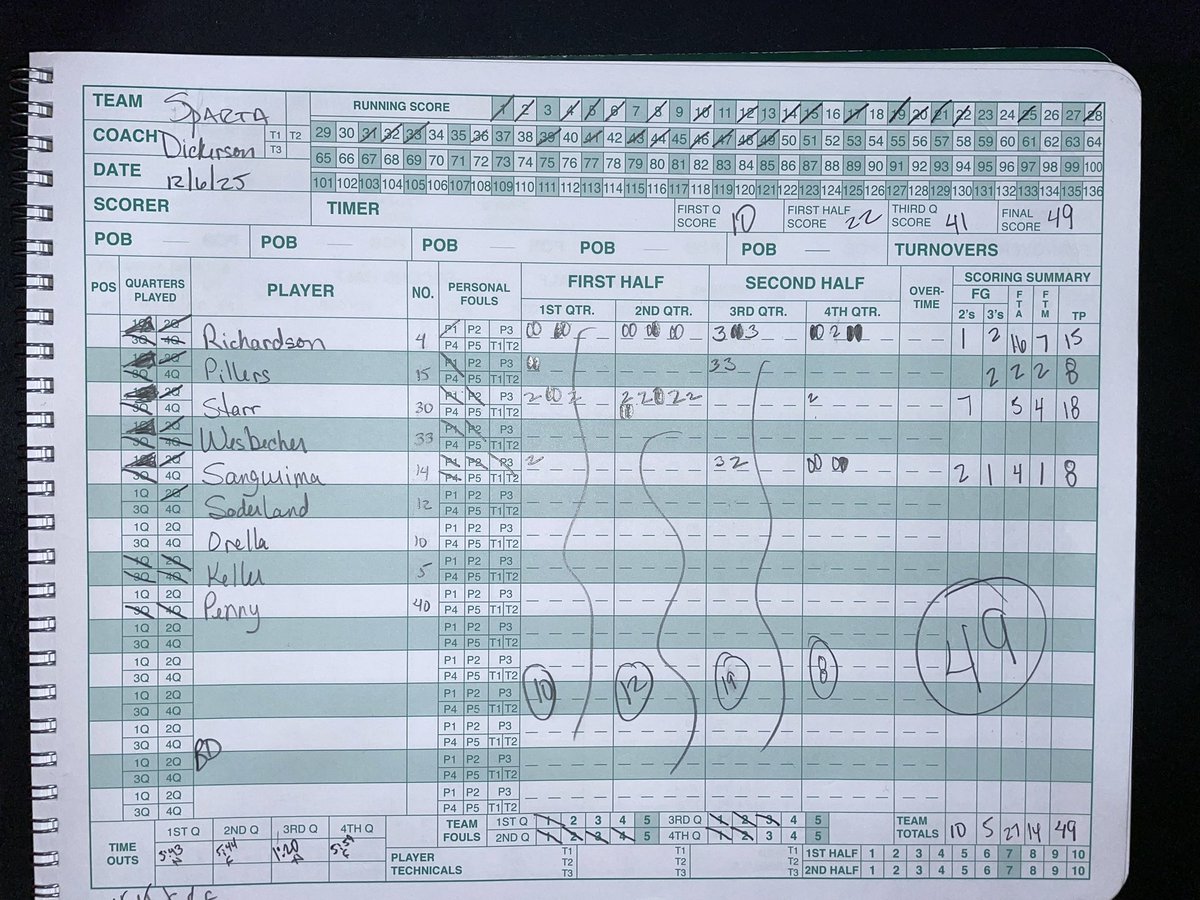 TEAM SPARTA RUNNING SCORE 1 2 3 4 5 6 7 8 9 10 11 12 13 14 15 16 17 18 19 20 21 22 23 24 25 26 27 28
COACH Dickerson T1 T2 T3 29 30 31 32 33 34 35 36 37 38 39 40 41 42 43 44 45 46 47 48 49 50 51 52 53 54 55 56 57 58 59 60 61 62 63 64
DATE 12/6/25 65 66 67 68 69 70 71 72 73 74 75 76 77 78 79 80 81 82 83 84 85 86 87 88 89 90 91 92 93 94 95 96 97 98 99 100
101 102 103 104 105 106 107 108 109 110 111 112 113 114 115 116 117 118 119 120 121 122 123 124 125 126 127 128 129 130 131 132 133 134 135 136
SCORER TIMER FIRST Q SCORE 10 FIRST HALF SCORE 22 THIRD Q SCORE 41 FINAL SCORE 49
POB POB POB POB POB TURNOVERS
POS QUARTERS PLAYED PLAYER NO. PERSONAL FOULS FIRST HALF SECOND HALF OVER-TIME SCORING SUMMARY
1ST QTR. 2ND QTR. 3RD QTR. 4TH QTR. FG 2's 3's FTA FTM TP
1Q 2Q 3Q 4Q Richardson 4 P1 P2 P3 P4 P5 T1 T2 1 2 16 7 15
1Q 2Q 3Q 4Q Pillers 15 P1 P2 P3 P4 P5 T1 T2 33 2 2 2 8
1Q 2Q 3Q 4Q Starr 30 P1 P2 P3 P4 P5 T1 T2 2 2 2 2 2 2 2 7 5 4 18
1Q 2Q 3Q 4Q Wesbecher 33 P1 P2 P3 P4 P5 T1 T2
1Q 2Q 3Q 4Q Sanguima 14 P1 P2 P3 P4 P5 T1 T2 2 32 2 1 4 1 8
1Q 2Q 3Q 4Q Soderland 12 P1 P2 P3 P4 P5 T1 T2
1Q 2Q 3Q 4Q Orella 10 P1 P2 P3 P4 P5 T1 T2
1Q 2Q 3Q 4Q Keller 5 P1 P2 P3 P4 P5 T1 T2
1Q 2Q 3Q 4Q Penny 40 P1 P2 P3 P4 P5 T1 T2
1Q 2Q 3Q 4Q P1 P2 P3 P4 P5 T1 T2 49
1Q 2Q 3Q 4Q P1 P2 P3 P4 P5 T1 T2
1Q 2Q 3Q 4Q P1 P2 P3 P4 P5 T1 T2 10 12 19 8
1Q 2Q 3Q 4Q P1 P2 P3 P4 P5 T1 T2
1Q 2Q 3Q 4Q BD P1 P2 P3 P4 P5 T1 T2
1Q 2Q 3Q 4Q P1 P2 P3 P4 P5 T1 T2
TIME OUTS 1ST Q 2ND Q 3RD Q 4TH Q TEAM FOULS 1ST Q 1 2 3 4 5 3RD Q 1 2 3 4 5 TEAM TOTALS 10 5 27 14 49
5:43 5:44 1:20 5:39 2ND Q 1 2 3 4 5 4TH Q 1 2 3 4 5
PLAYER TECHNICALS T1 T2 T3 T1 T2 T3 T1 T2 T3 1ST HALF 1 2 3 4 5 6 7 8 9 10
2ND HALF 1 2 3 4 5 6 7 8 9 10